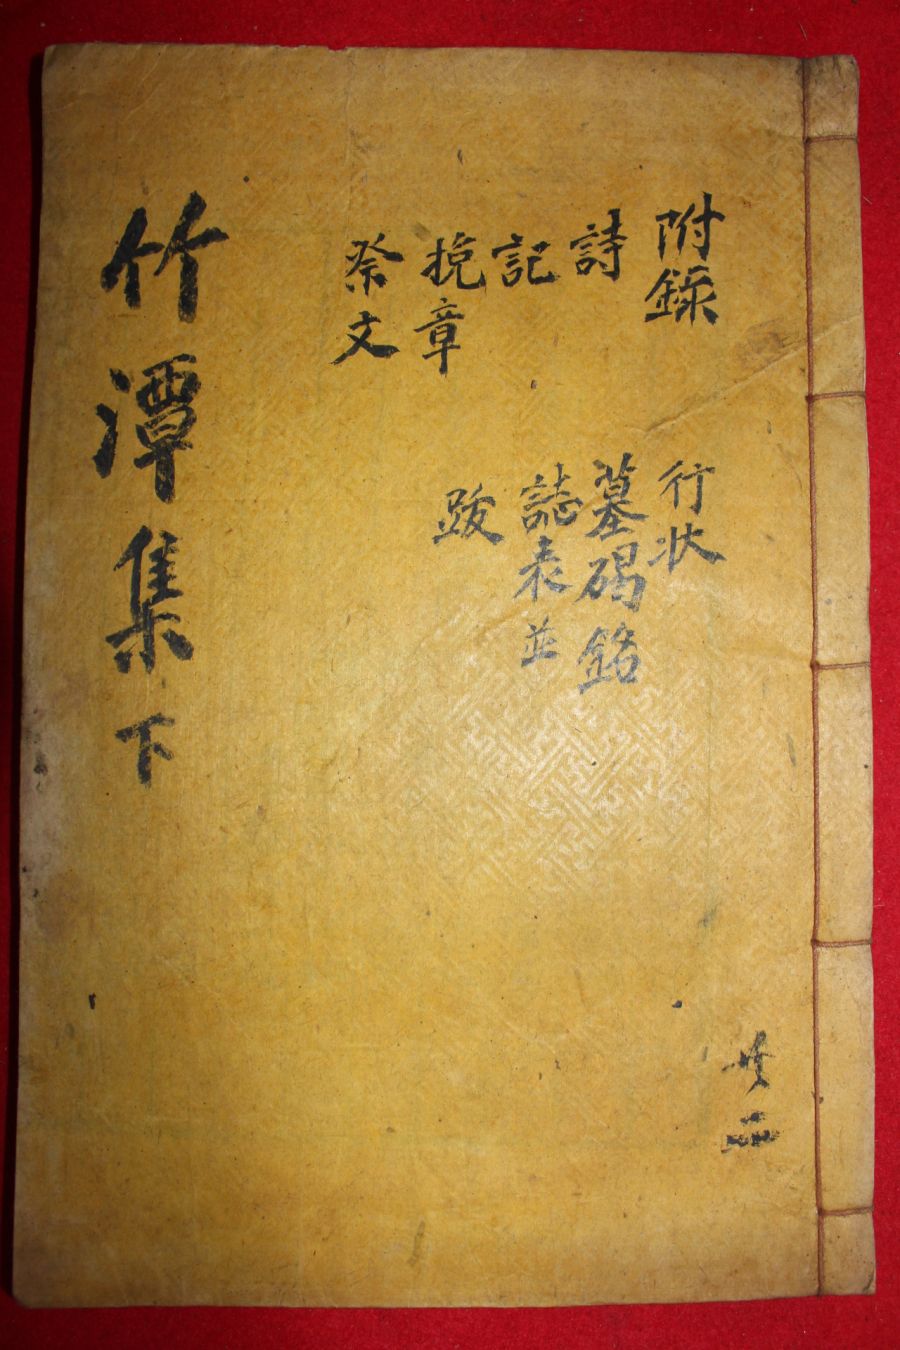 附錄
詩
記
挽章
祭文
行狀
墓碣銘
誌表並
跋
竹潭集 下
共二